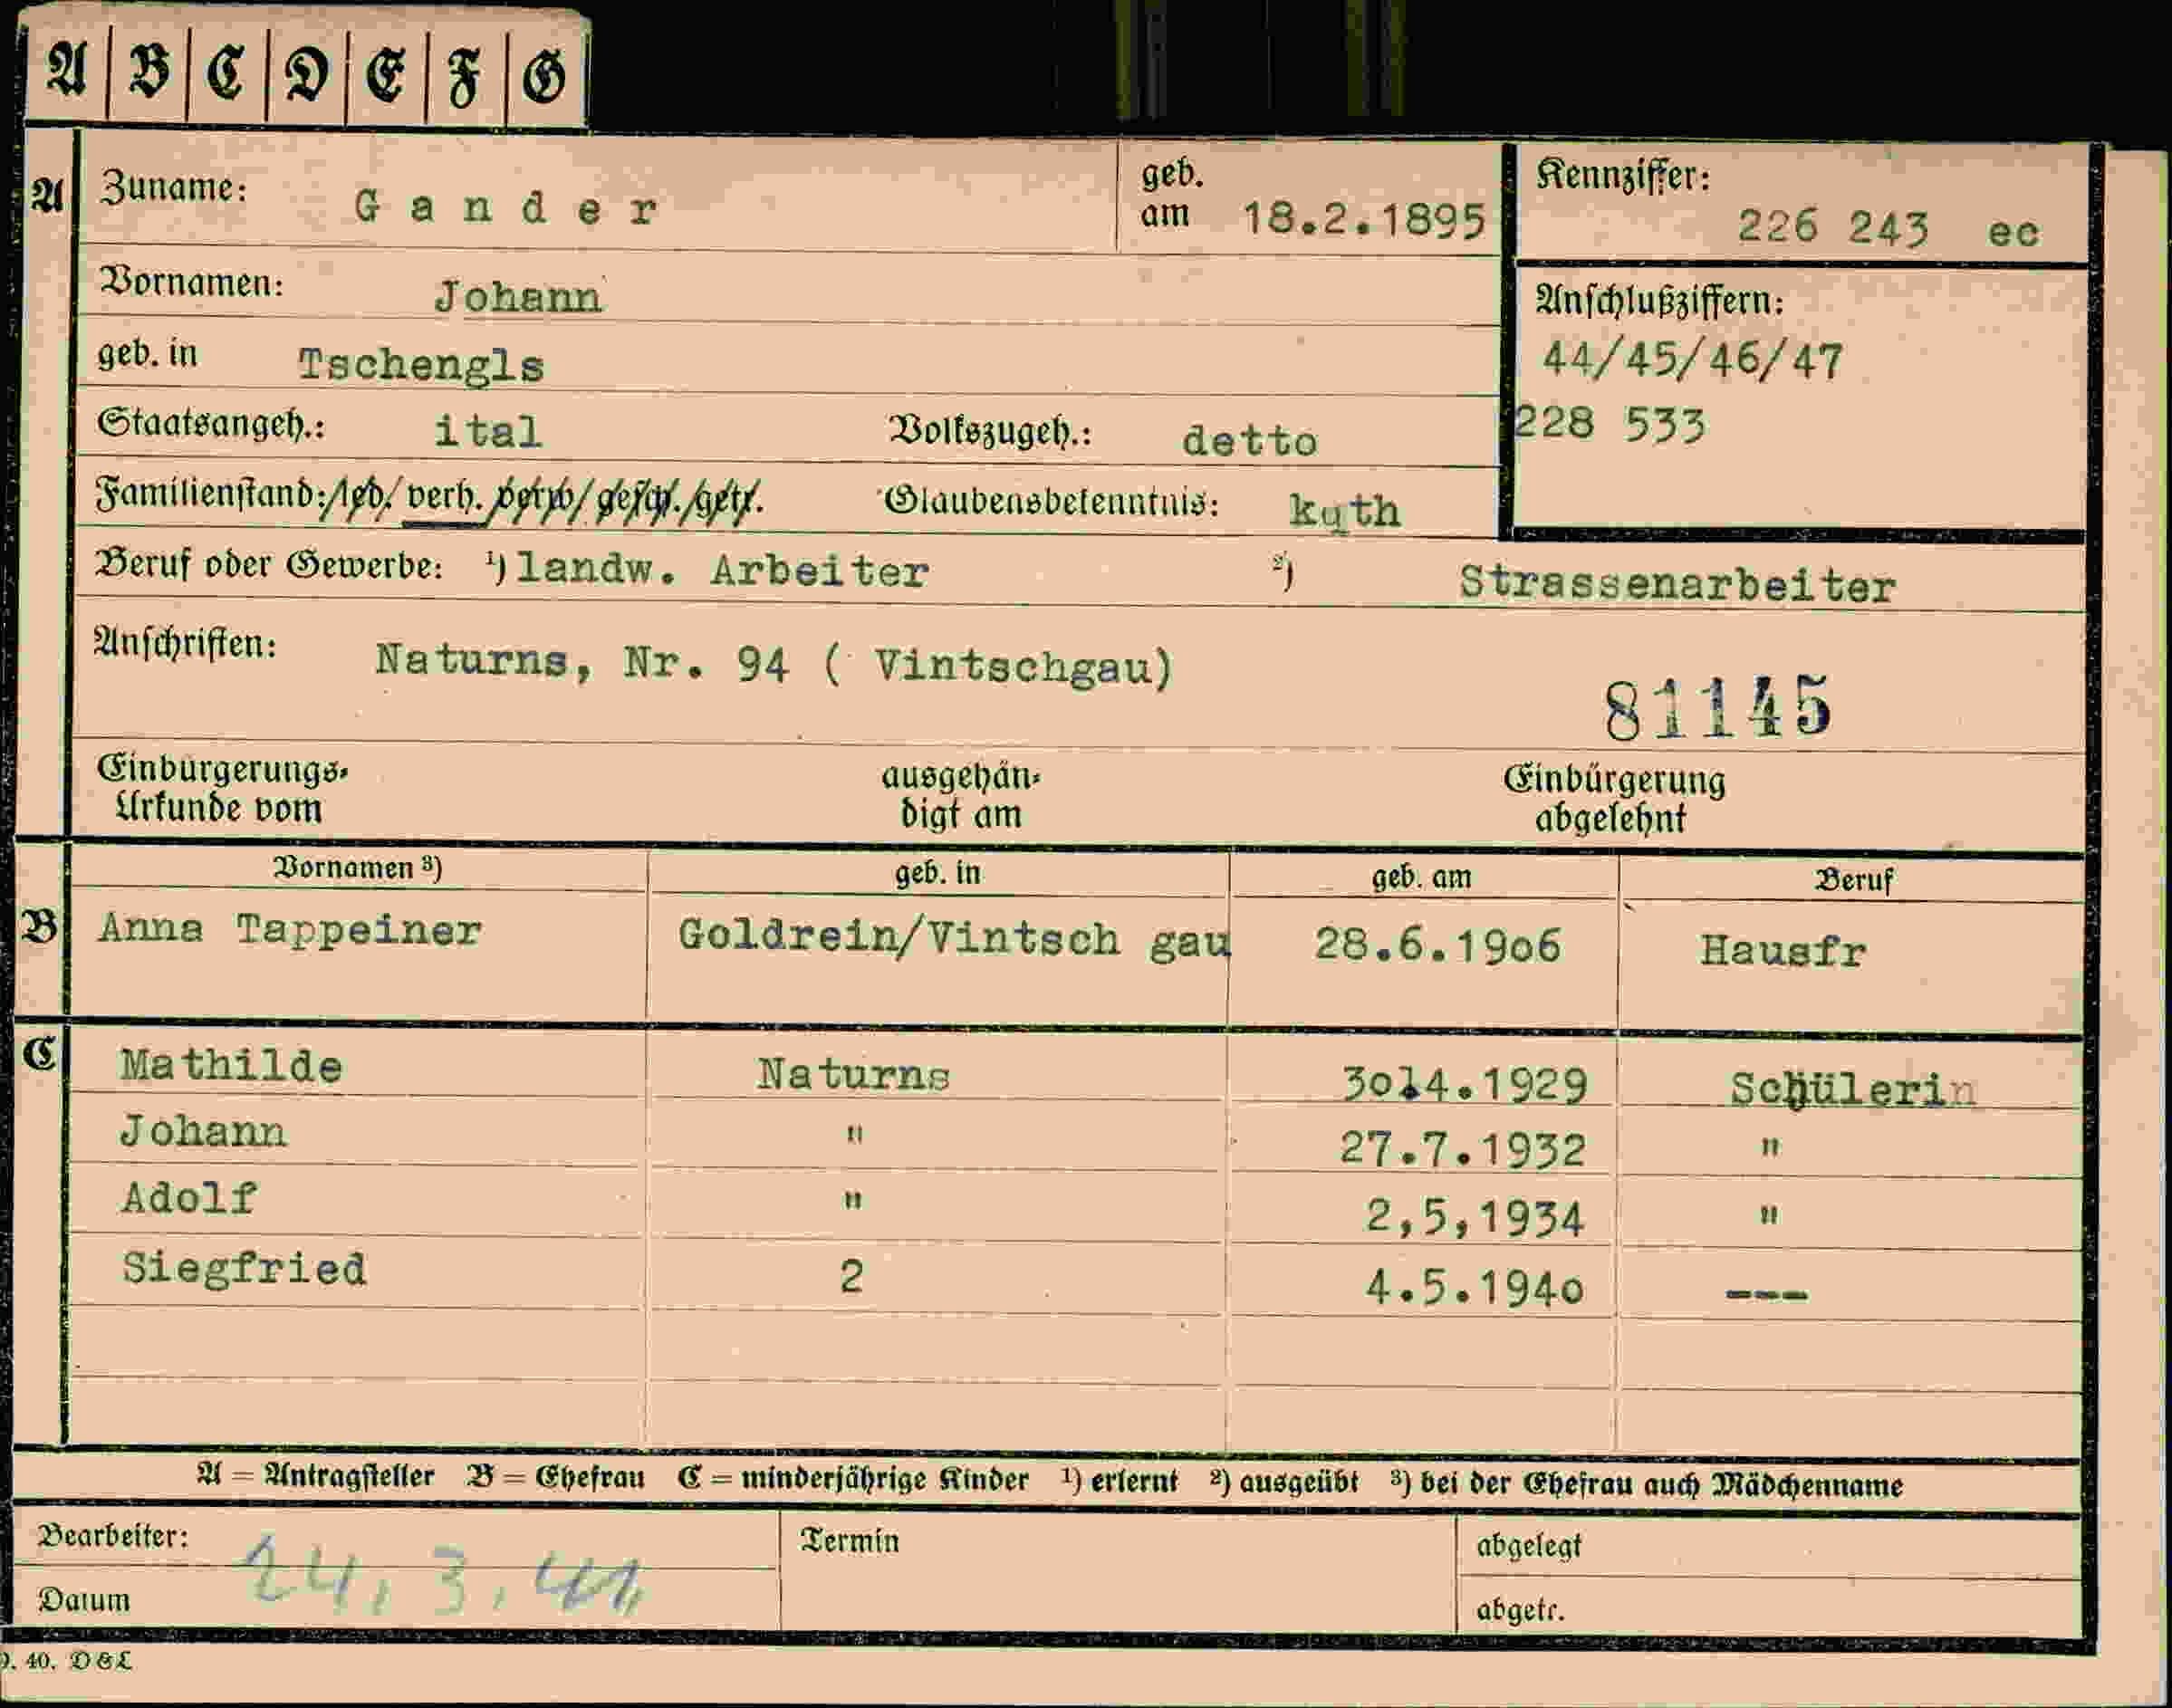 A B C D E F G
A Zuname: Gander geb. am 18.2.1895 Kennziffer: 226 243 ec
Vornamen: Johann Anschlußziffern:
geb. in Tschengls 44/45/46/47
Staatsangeh.: ital Volkszugeh.: detto 228 533
Familienstand: led. verh. verw. gesch. getr. Glaubensbekenntnis: kath
Beruf oder Gewerbe: ¹) landw. Arbeiter ²) Strassenarbeiter
Anschriften: Naturns, Nr. 94 ( Vintschgau)
81145
Einbürgerungs-Urkunde vom ausgehändigt am Einbürgerung abgelehnt
Vornamen ³) geb. in geb. am Beruf
B Anna Tappeiner Goldrein/Vintsch gau 28.6.19o6 Hausfr
C Mathilde Naturns 3o.4.1929 Schülerin
Johann " 27.7.1932 "
Adolf " 2,5,1934 "
Siegfried 2 4.5.194o ---
A = Antragsteller B = Ehefrau C = minderjährige Kinder ¹) erlernt ²) ausgeübt ³) bei der Ehefrau auch Mädchenname
Bearbeiter: Termin abgelegt
Datum 24.3.41 abgetr.
40. D&L